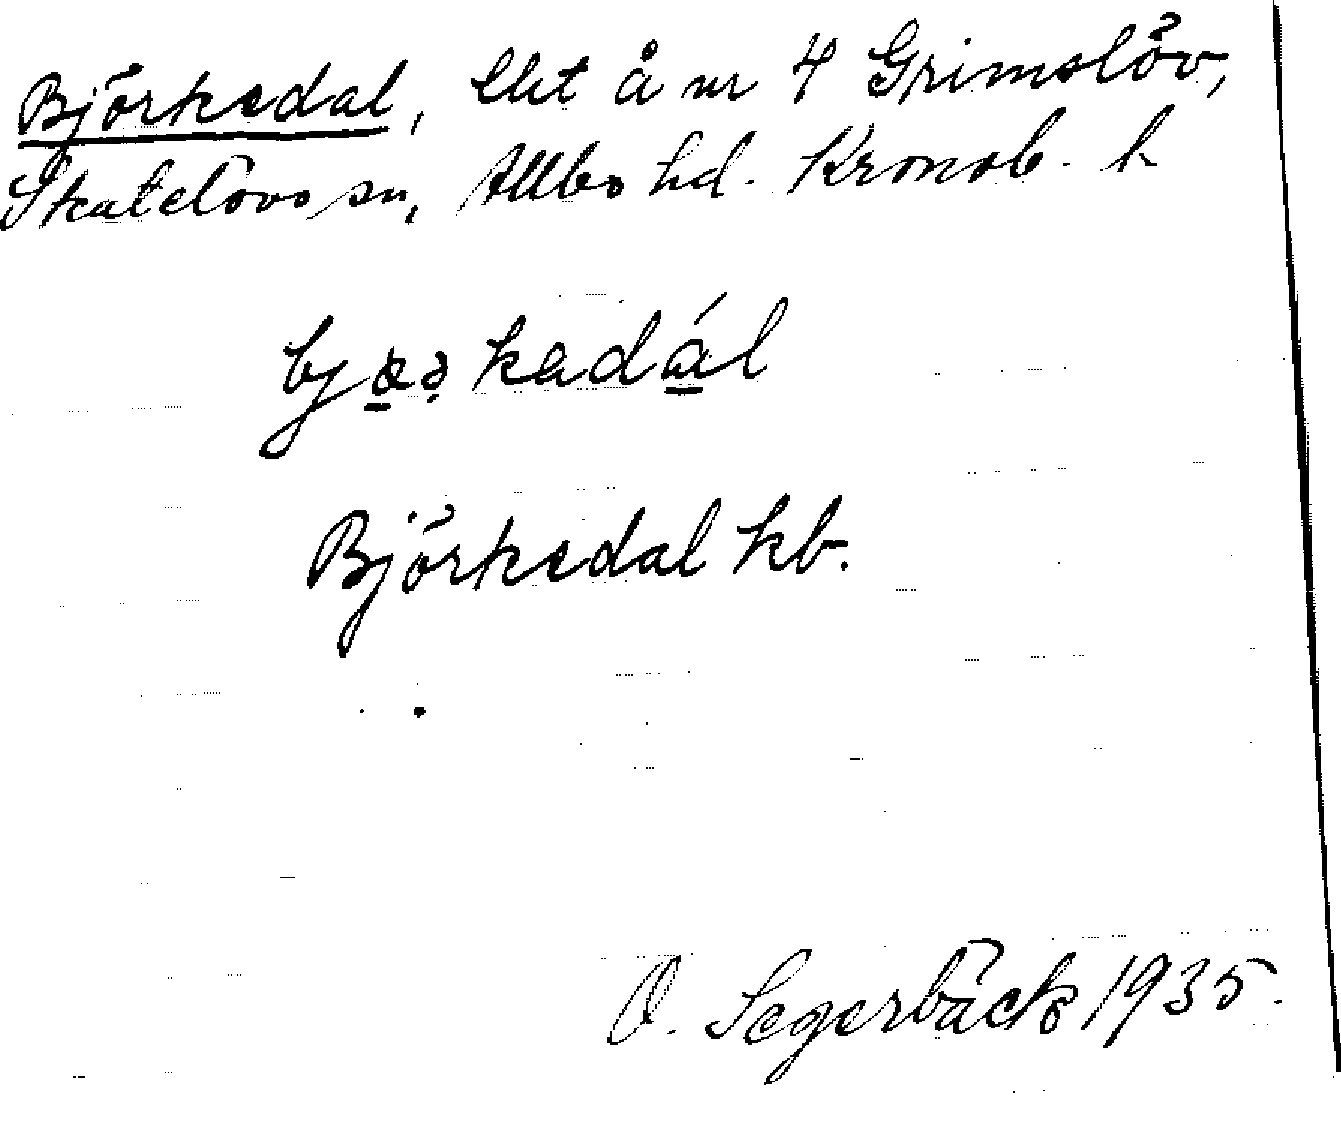 Björkedal, lht å nr 4 Grimslöv,
Skatelövs sn, Allbo hd. Kronob. l.
Björkedal kb.
O. Segerbäck 1935.